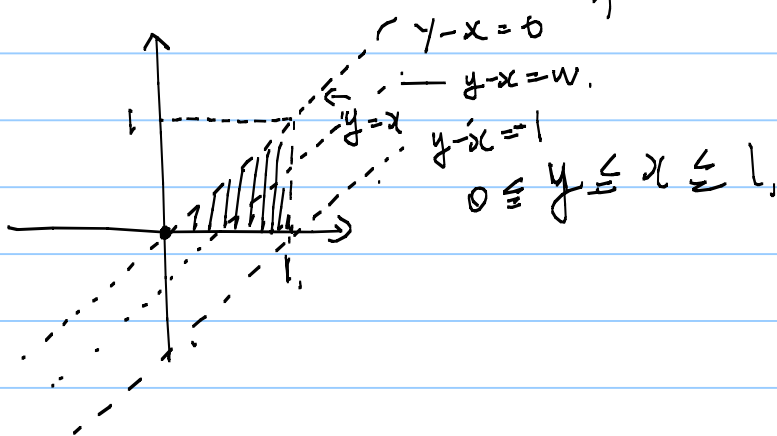 y-x=0
y-x=w.
1
y=x
y-x=-1
0≦y≦x≦1.
1.